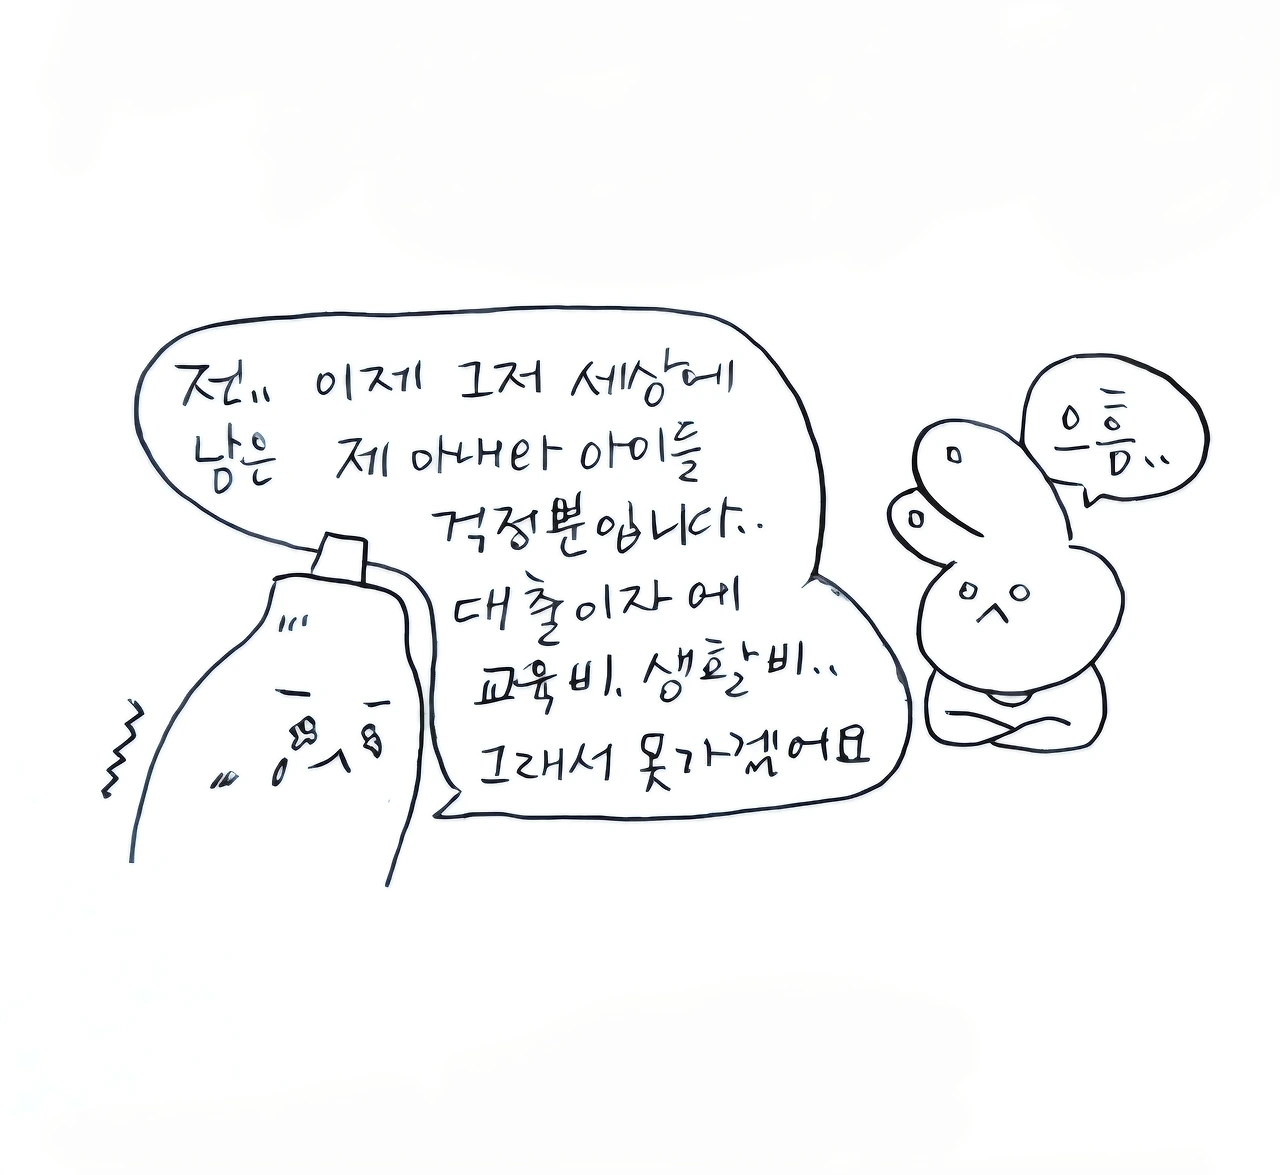 전.. 이제 그저 세상에
남은 제 아내랑 아이들
걱정뿐입니다..
대출이자에
교육비, 생활비..
그래서 못가겠어요
으흠..